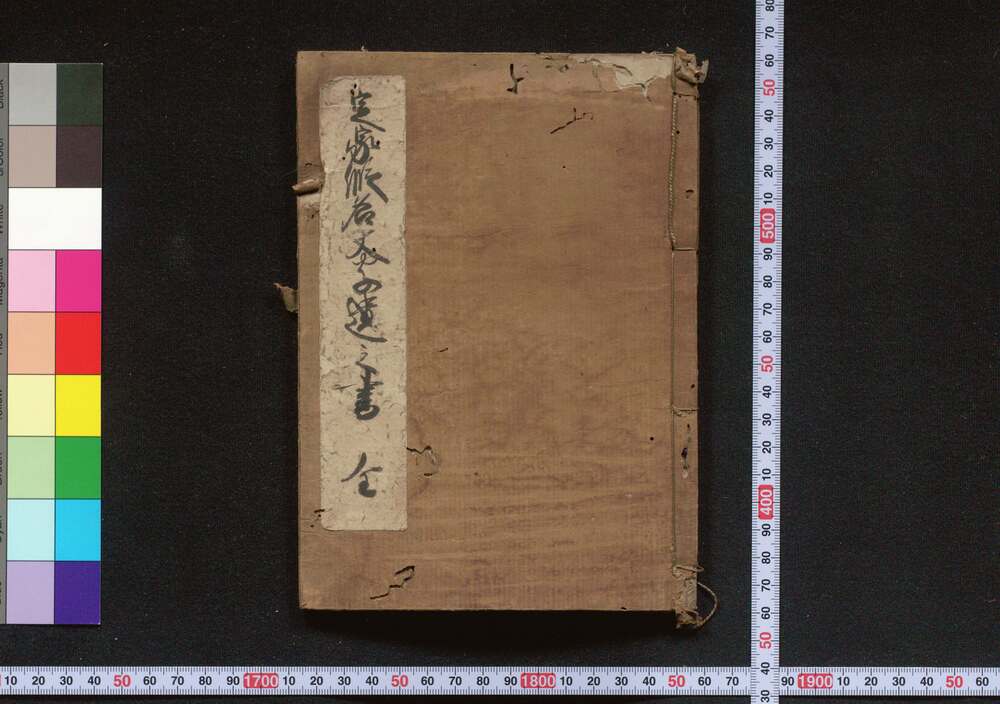 定家仮名文字遣之書 全
White
Magenta
80 70 60 50 40 30 20 10 500 90 80 70 60 50 40 30 20 10 400 90 80 70 60 50 40 30
10 20 30 40 50 60 70 80 90 1700 10 20 30 40 50 60 70 80 90 1800 10 20 30 40 50 60 70 90 1900 10 20 30 40 50 60